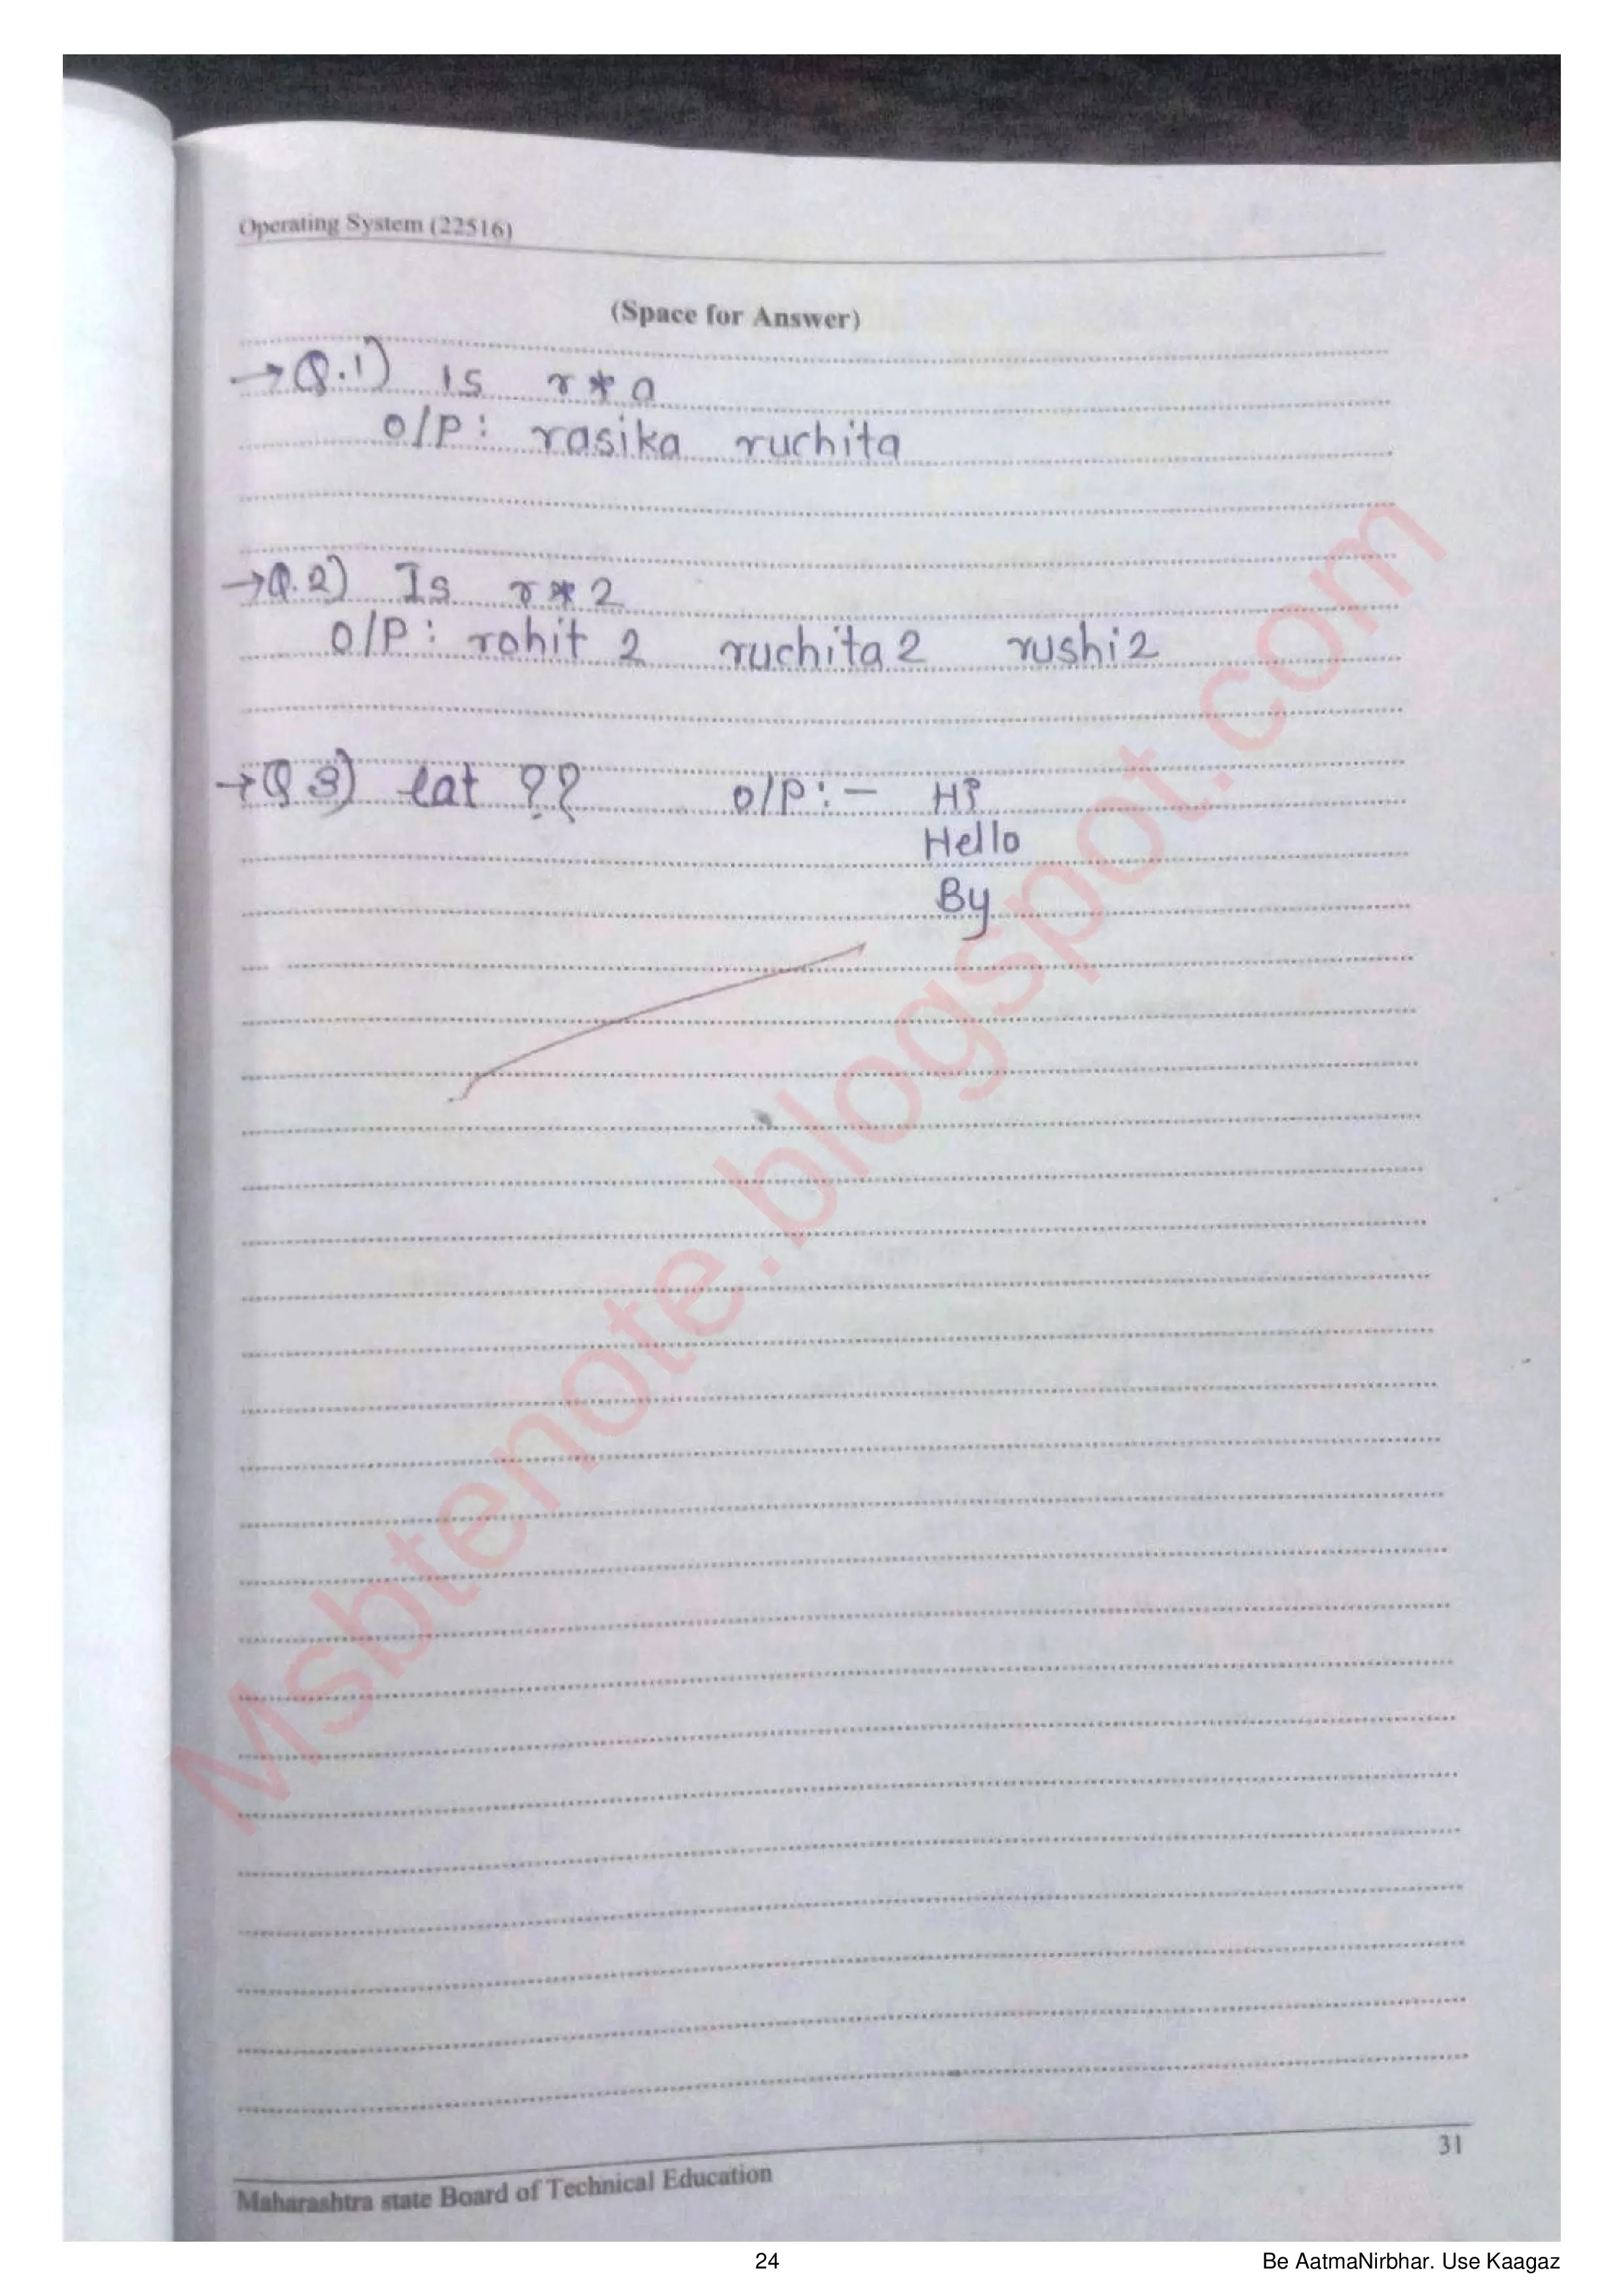 Operating System (22516)
(Space for Answer)
→Q.1) ls r*a
O/P: rasika ruchita
→Q.2) ls r*2
O/P: rohit 2 ruchita 2 rushi2
→Q 3) cat ?? O/P:- Hi
Hello
By
Msbtenote.blogspot.com
31
Maharashtra state Board of Technical Education
24 Be AatmaNirbhar. Use Kaagaz